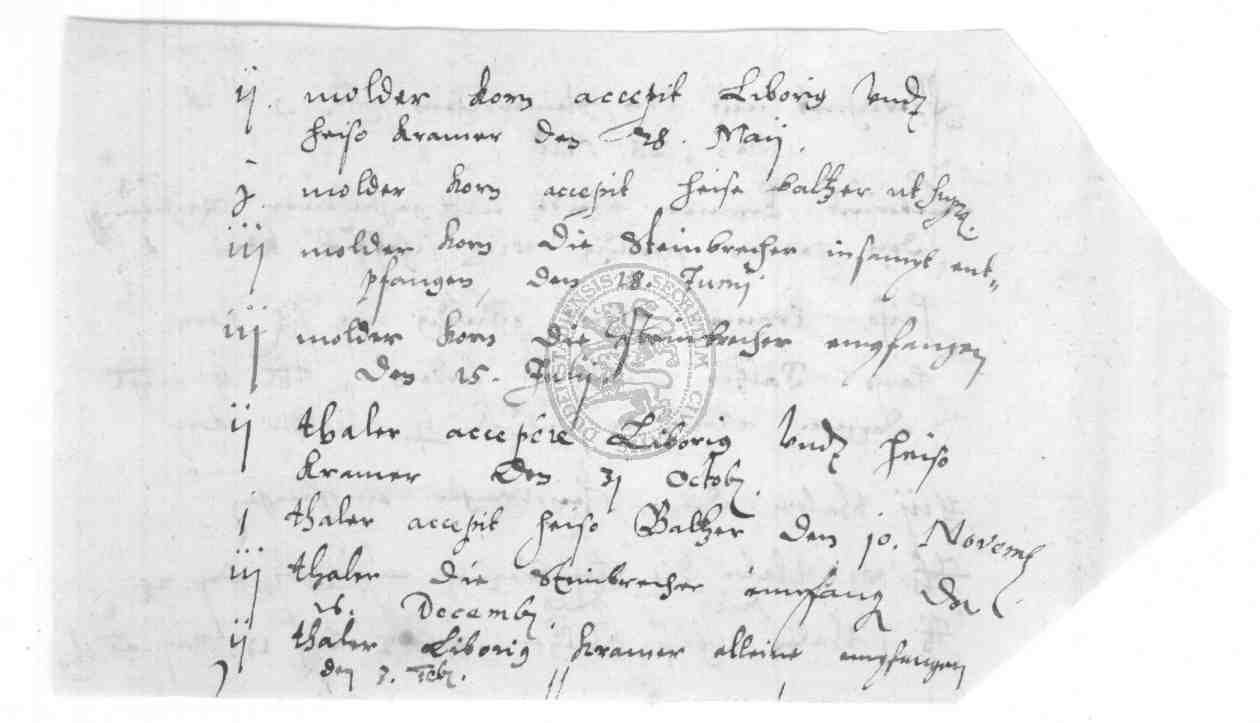 ij. molder korn accepit Liborig vndt
heiso kramer den 28. Maij.
j. molder korn accepit heise baltzer ut supra.
iij molder korn die Steinbrecher insampt ent„
pfangen, den 18. Junij.
iij molder korn die Steinbrecher empfangen
den 15. Julij.
ij thaler accepere Liborig vndt heiso
kramer den 31 Octob.
j thaler accepit heiso Baltzer den 10. Novemb
iij thaler die Steinbrecher empfang den
Decemb.
ij thaler Liborig kramer alleine empfangen
den 3. Feb.